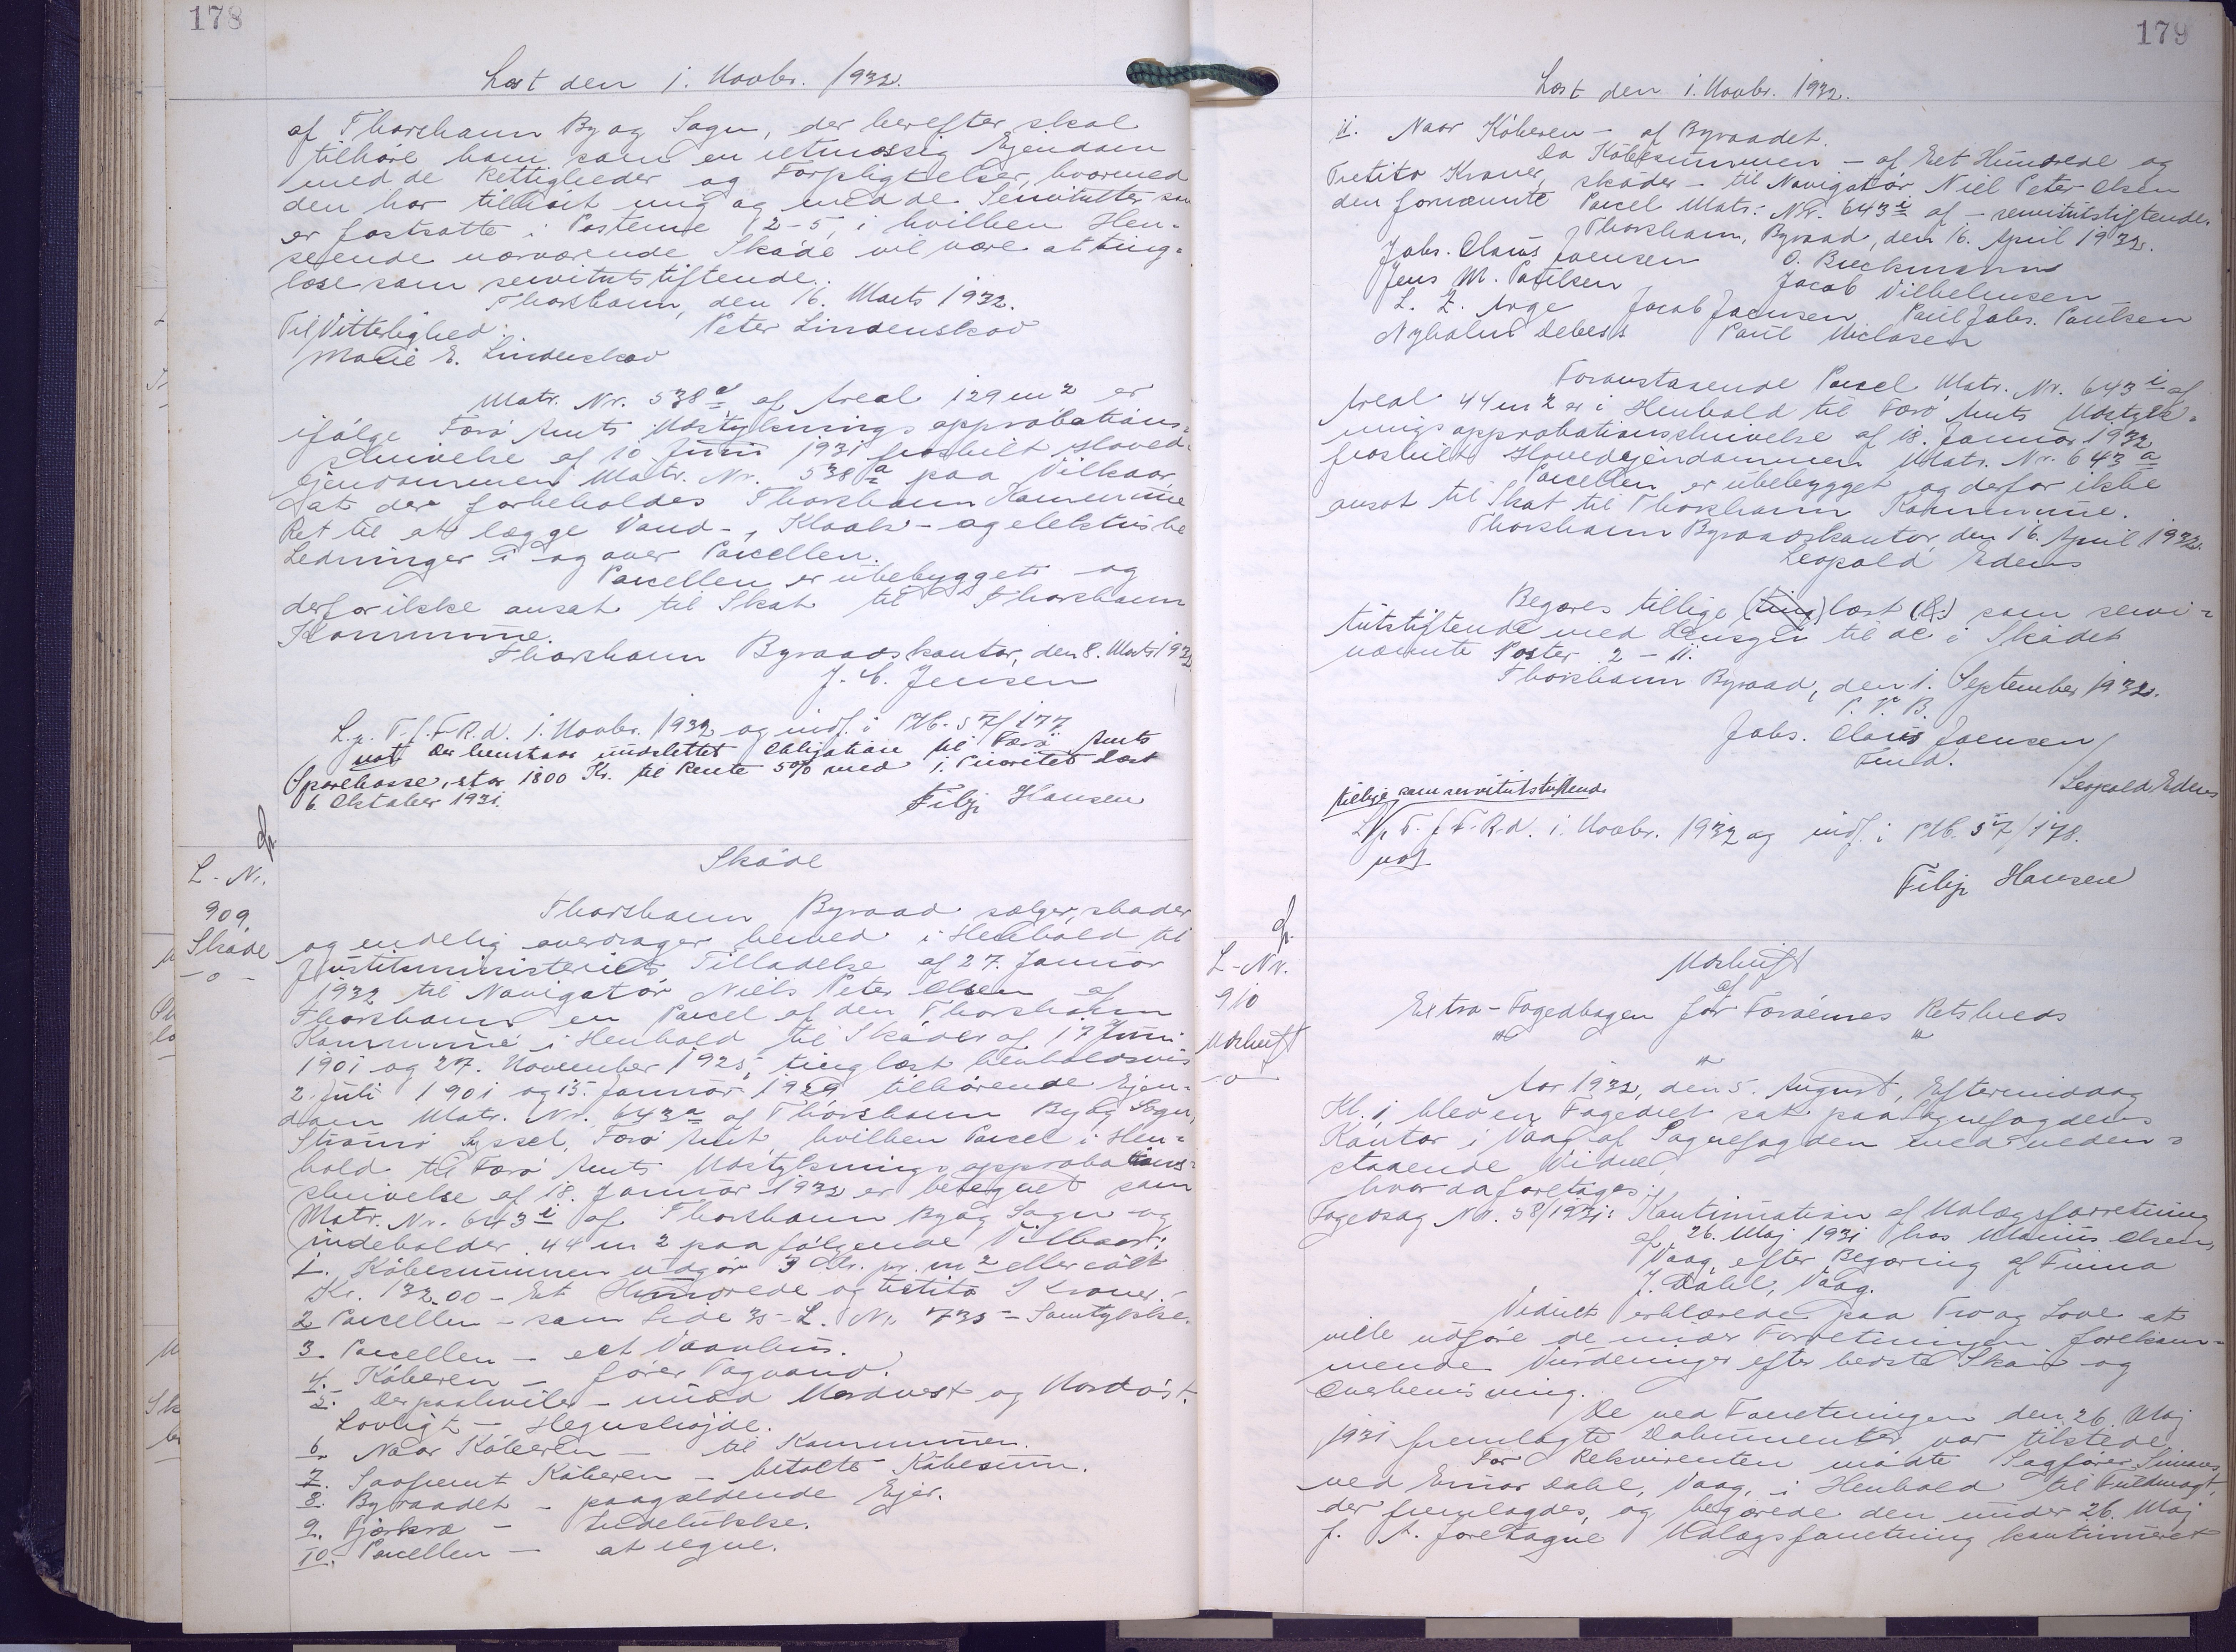 178
Læst den 1. Novbr. 1932.
af Thorshavn By og Sogn, der herefter skal
tilhøre ham som en retmæssig Ejendom
med de Rettigheder og Forpligtelser, hvormed
den har tilhørt mig og med de Servitutter som
er fastsatte i Posterne 2-5, i hvilken Hen-
seende nærværende Skøde vil være at ting-
læse som servitutstiftende.
Thorshavn, den 16. Marts 1932.
Til Vitterlighed: Peter Lindenskov
Marie E. Lindenskov
Matr. Nr. 538 d af Areal 129 m2 er
ifølge Færø Amts Udstyknings approbations-
skrivelse af 10 Juni 1931 fraskilt Hoved-
ejendommen Matr. Nr. 538 a paa Vilkaar,
at der forbeholdes Thorshavn Kommune
Ret til at lægge Vand-, Kloak- og elektriske
Ledninger i og over Parcellen.
Parcellen er ubebygget og
derfor ikke ansat til Skat til Thorshavn
Kommune.
Thorshavn Byraadskontor, den 8. Marts 1932
J. C. Jensen
L. p. T. f. F. R. d. 1. Novbr. 1932 og indf. i Ptb. 57/177
not Der henstaar uudslettet Obligation til Færø Amts
Sparekasse, stor 1800 Kr. til Rente 5% med 1. Prioritet læst
6. Oktober 1931.
Filip Hansen
L-Nr.
909.
Skøde
-o-
Skøde
Thorshavn Byraad sælger, skøder
og endelig overdrager herved i Henhold til
Justitsministeriets Tilladelse af 27. Januar
1932 til Navigatør Niels Peter Olsen af
Thorshavn en Parcel af den Thorshavn
Kommune i Henhold til Skøder af 17 Juni
1901 og 27. November 1925, tinglæst henholdsvis
2. Juli 1901 og 15. Januar 1929 tilhørende Ejen-
dom Matr. Nr. 643 a af Thorshavn By og Sogn,
Strømø Syssel, Færø Amt, hvilken Parcel i Hen-
hold til Færø Amts Udstyknings approbations-
skrivelse af 18. Januar 1932 er betegnet som
Matr. Nr. 643 i af Thorshavn By og Sogn og
indeholder 44 m2 paa følgende Vilkaar:
1. Købesummen udgør 3 Kr. pr. m2 eller ialt
Kr. 132.00 - Et Hundrede og tretito Kroner.
2 Parcellen - som Side 35 - L. Nr. 735 - Samtykke.
3. Parcellen - eet Vaanhus.
4. Køberen - fører Tagvand.
5. Der paahviler - mod Nordvest og Nordøst.
Lovligt - Hegnshøjde.
6. Naar Køberen - til Kommunen.
7. Saafremt Køberen - betalte Købesum.
8. Byraadet - paagældende Ejer.
9. Fjerkræ - Indelukke.
10. Parcellen - at regne.
179
Læst den 1. Novbr. 1932.
11. Naar Køberen - af Byraadet.
Da Købesummen - af Eet Hundrede og
Tretito Kroner, skøder - til Navigatør Niel Peter Olsen
den fornævnte Parcel Matr. Nr. 643 i af - servitutstiftende.
Thorshavn, Byraad, den 16. April 1932.
Johs. Claus Joensen
Jens M. Poulsen Jacob Vilhelmsen
L. Z. Arge Jacob Joensen Poul Johs. Poulsen
Nyholm Debess Poul Niclasen
Foranstaaende Parcel Matr. Nr. 643 i af
Areal 44 m2 er i Henhold til Færø Amts Udstyk-
nings approbationsskrivelse af 18. Januar 1932
fraskilt Hovedejendommen Matr. Nr. 643 a
Parcellen er ubebygget og derfor ikke
ansat til Skat til Thorshavn Kommune.
Thorshavn Byraadskontor, den 16. April 1932.
Leopold Edens
Begæres tillige (ting) læst som servi-
tutstiftende med Hensyn til de i Skødet
nævnte Poster 2 - 11.
Thorshavn Byraad, den 1. September 1932.
P. V. B.
Johs. Claus Joensen /
Fmd.
/ Leopold Edens
tillige som servitutstiftende
L. p. T. f. F. R. d. 1. Novbr. 1932 og indf. i Ptb. 57/178.
not
Filip Hansen
L-Nr.
910
Udskrift
-o-
Udskrift
af
Extra-Fogedbogen for Færøernes Retskreds
Aar 1932, den 5. August, Eftermiddag
Kl. 1, blev en Fogedret sat paa Sognefogdens
Kontor i Vaag af Sognefogden med neden-
staaende Vidne,
hvor da foretoges:
Fogedsag Nr. 58/1931: Kontinuation af Udlægsforretning
af 26. Maj 1931 hos Olsen,
Vaag, efter Begæring af Firma
J. Dahl, Vaag.
Vidnet erklærede paa Tro og Love at
ville udføre de under Forretningen forekom-
mende Vurderinger efter bedste Skøn og
Overbevisning.
De ved Forretningen den 26. Maj
1931 fremlagte Dokumenter var tilstede.
For Rekvirenten mødte Sagfører Simons
ved Einar Dahl, Vaag, i Henhold til Fuldmagt,
der fremlagdes, og begærede den under 26. Maj
f. A. foretagne Udlægsforretning kontinueret